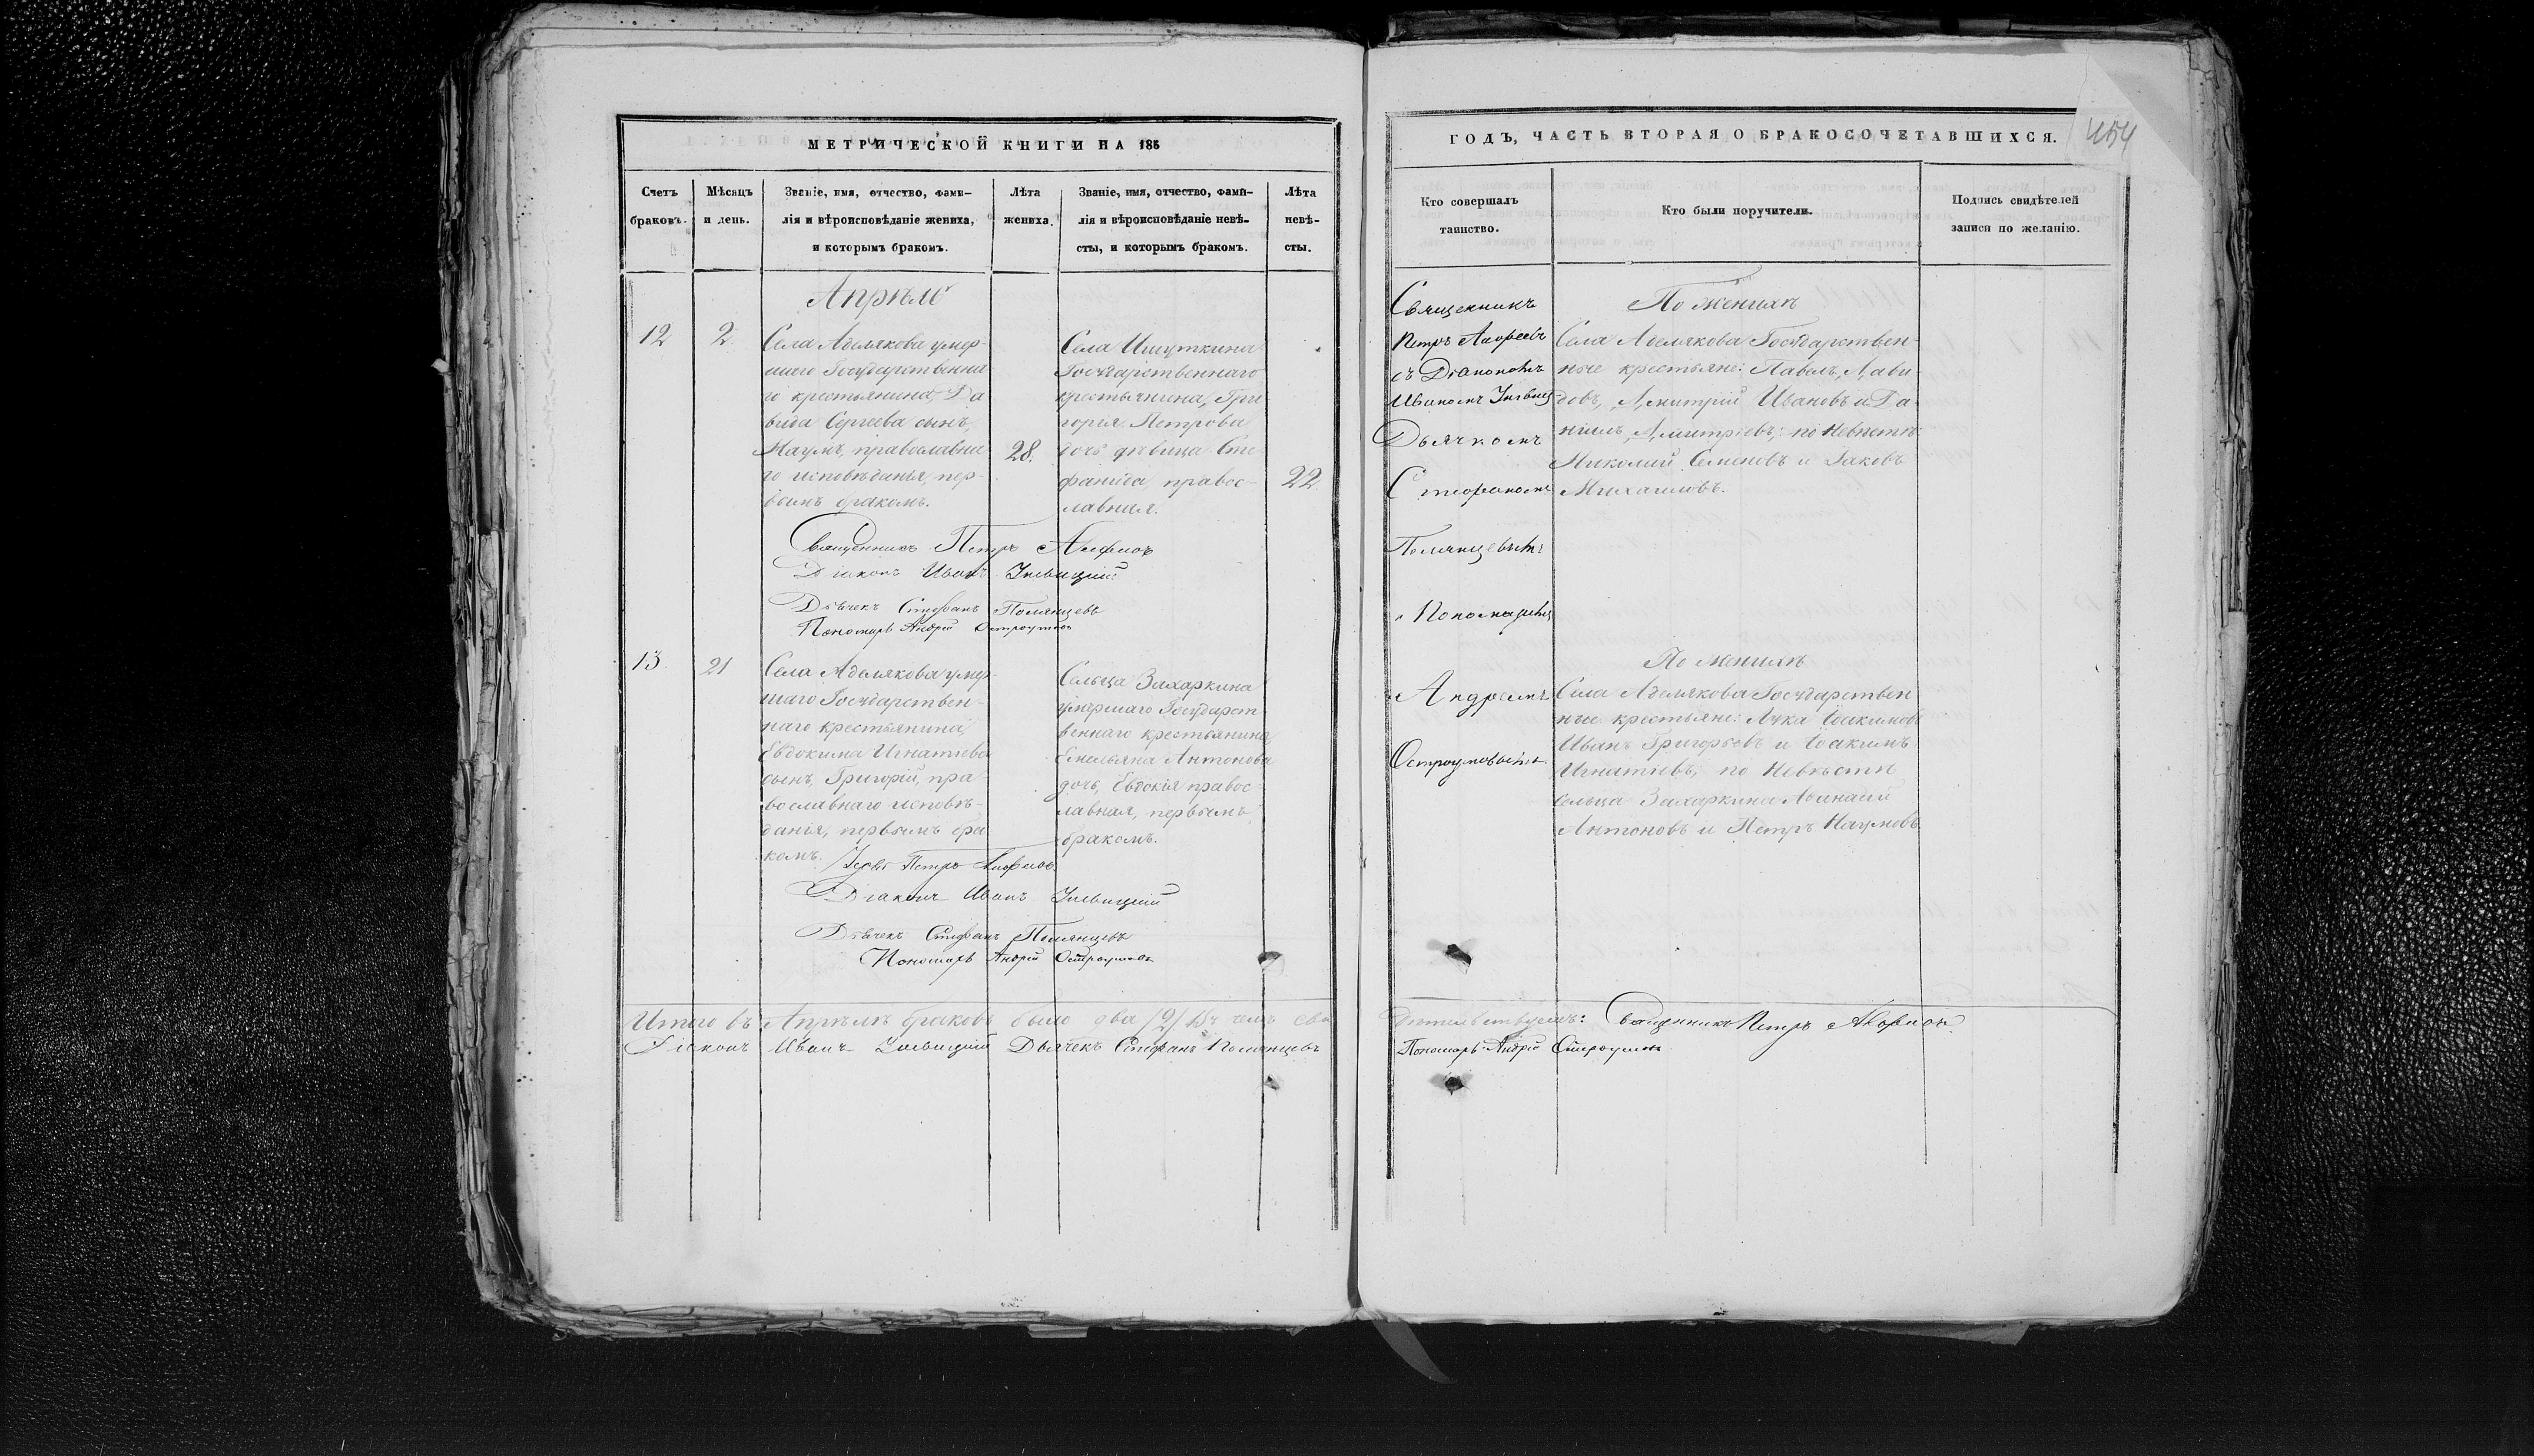 МЕТРИЧЕСКОЙ КНИГИ НА 185
Счетъ браковъ.
Мѣсяцъ и день.
Званіе, имя, отчество, фами-
лія и вѣроисповѣданіе жениха,
и которымъ бракомъ.
Лѣта жениха.
Званіе, имя, отчество, фами-
лія и вѣроисповѣданіе невѣ-
сты, и которымъ бракомъ.
Лѣта невѣ-
сты.
Апрѣль
12
2.
Села Аделякова умер-
шаго Государственна
го крестьянина, Да
вида Сергеева сынъ,
Наумъ, православна
го исповѣданья, пер-
вымъ бракомъ.
28.
Села Ишуткина
Государственнаго
крестьянина, Гри
горія Петрова
дочь дѣвица Сте
фанида, правос-
лавная.
22.
Священникъ Петръ
Діаконъ Иванъ
Дьячекъ Стефанъ Полянцевъ
Пономарь Андрей Остроумовъ
13
21
Села Аделякова умер-
шаго Государствен-
наго крестьянина,
Евдокима Игнатьева
сынъ, Григорій, пра
вославнаго исповѣ-
данія, первымъ бра
комъ.
Сельца Захаркина
умершаго Государст
веннаго крестьянина,
Емельяна Антонова
дочь, Евдокія правос
лавная, первымъ
бракомъ.
Іерей Петръ
Діаконъ Иванъ
Дьячекъ Стефанъ Полянцевъ
Пономарь Андрей Остроумовъ
Итого въ Апрѣлѣ браковъ было два /2/ Въ чемъ сви
Діаконъ Иванъ Дьячекъ Стефанъ Полянцевъ
ГОДЪ, ЧАСТЬ ВТОРАЯ О БРАКОСОЧЕТАВШИХСЯ.
454
Кто совершалъ
таинство.
Кто были поручители.
Подпись свидѣтелей
записи по желанію.
Священникъ
Петръ
съ Діакономъ
Иваномъ
Дьячкомъ
Стефаномъ
Полянцевымъ
и Пономаремъ
Андреемъ
Остроумовымъ.
По женихѣ
Села Аделякова Государствен-
ные крестьяне: Павелъ Дави-
довъ, Дмитрій Ивановъ и Да-
ніилъ Дмитріевъ; по невѣстѣ
Николай Семеновъ и Яковъ
Михаиловъ.
По женихѣ
Села Аделякова Государствен
ные крестьяне: Лука Іоакимовъ
Иванъ Григорьевъ и Іоакимъ
Игнатіевъ; по Невѣстѣ
сельца Захаркина Афанасій
Антоновъ и Петръ Наумовъ
дѣтельствуемъ: Священникъ Петръ
Пономарь Андрей Остроумовъ